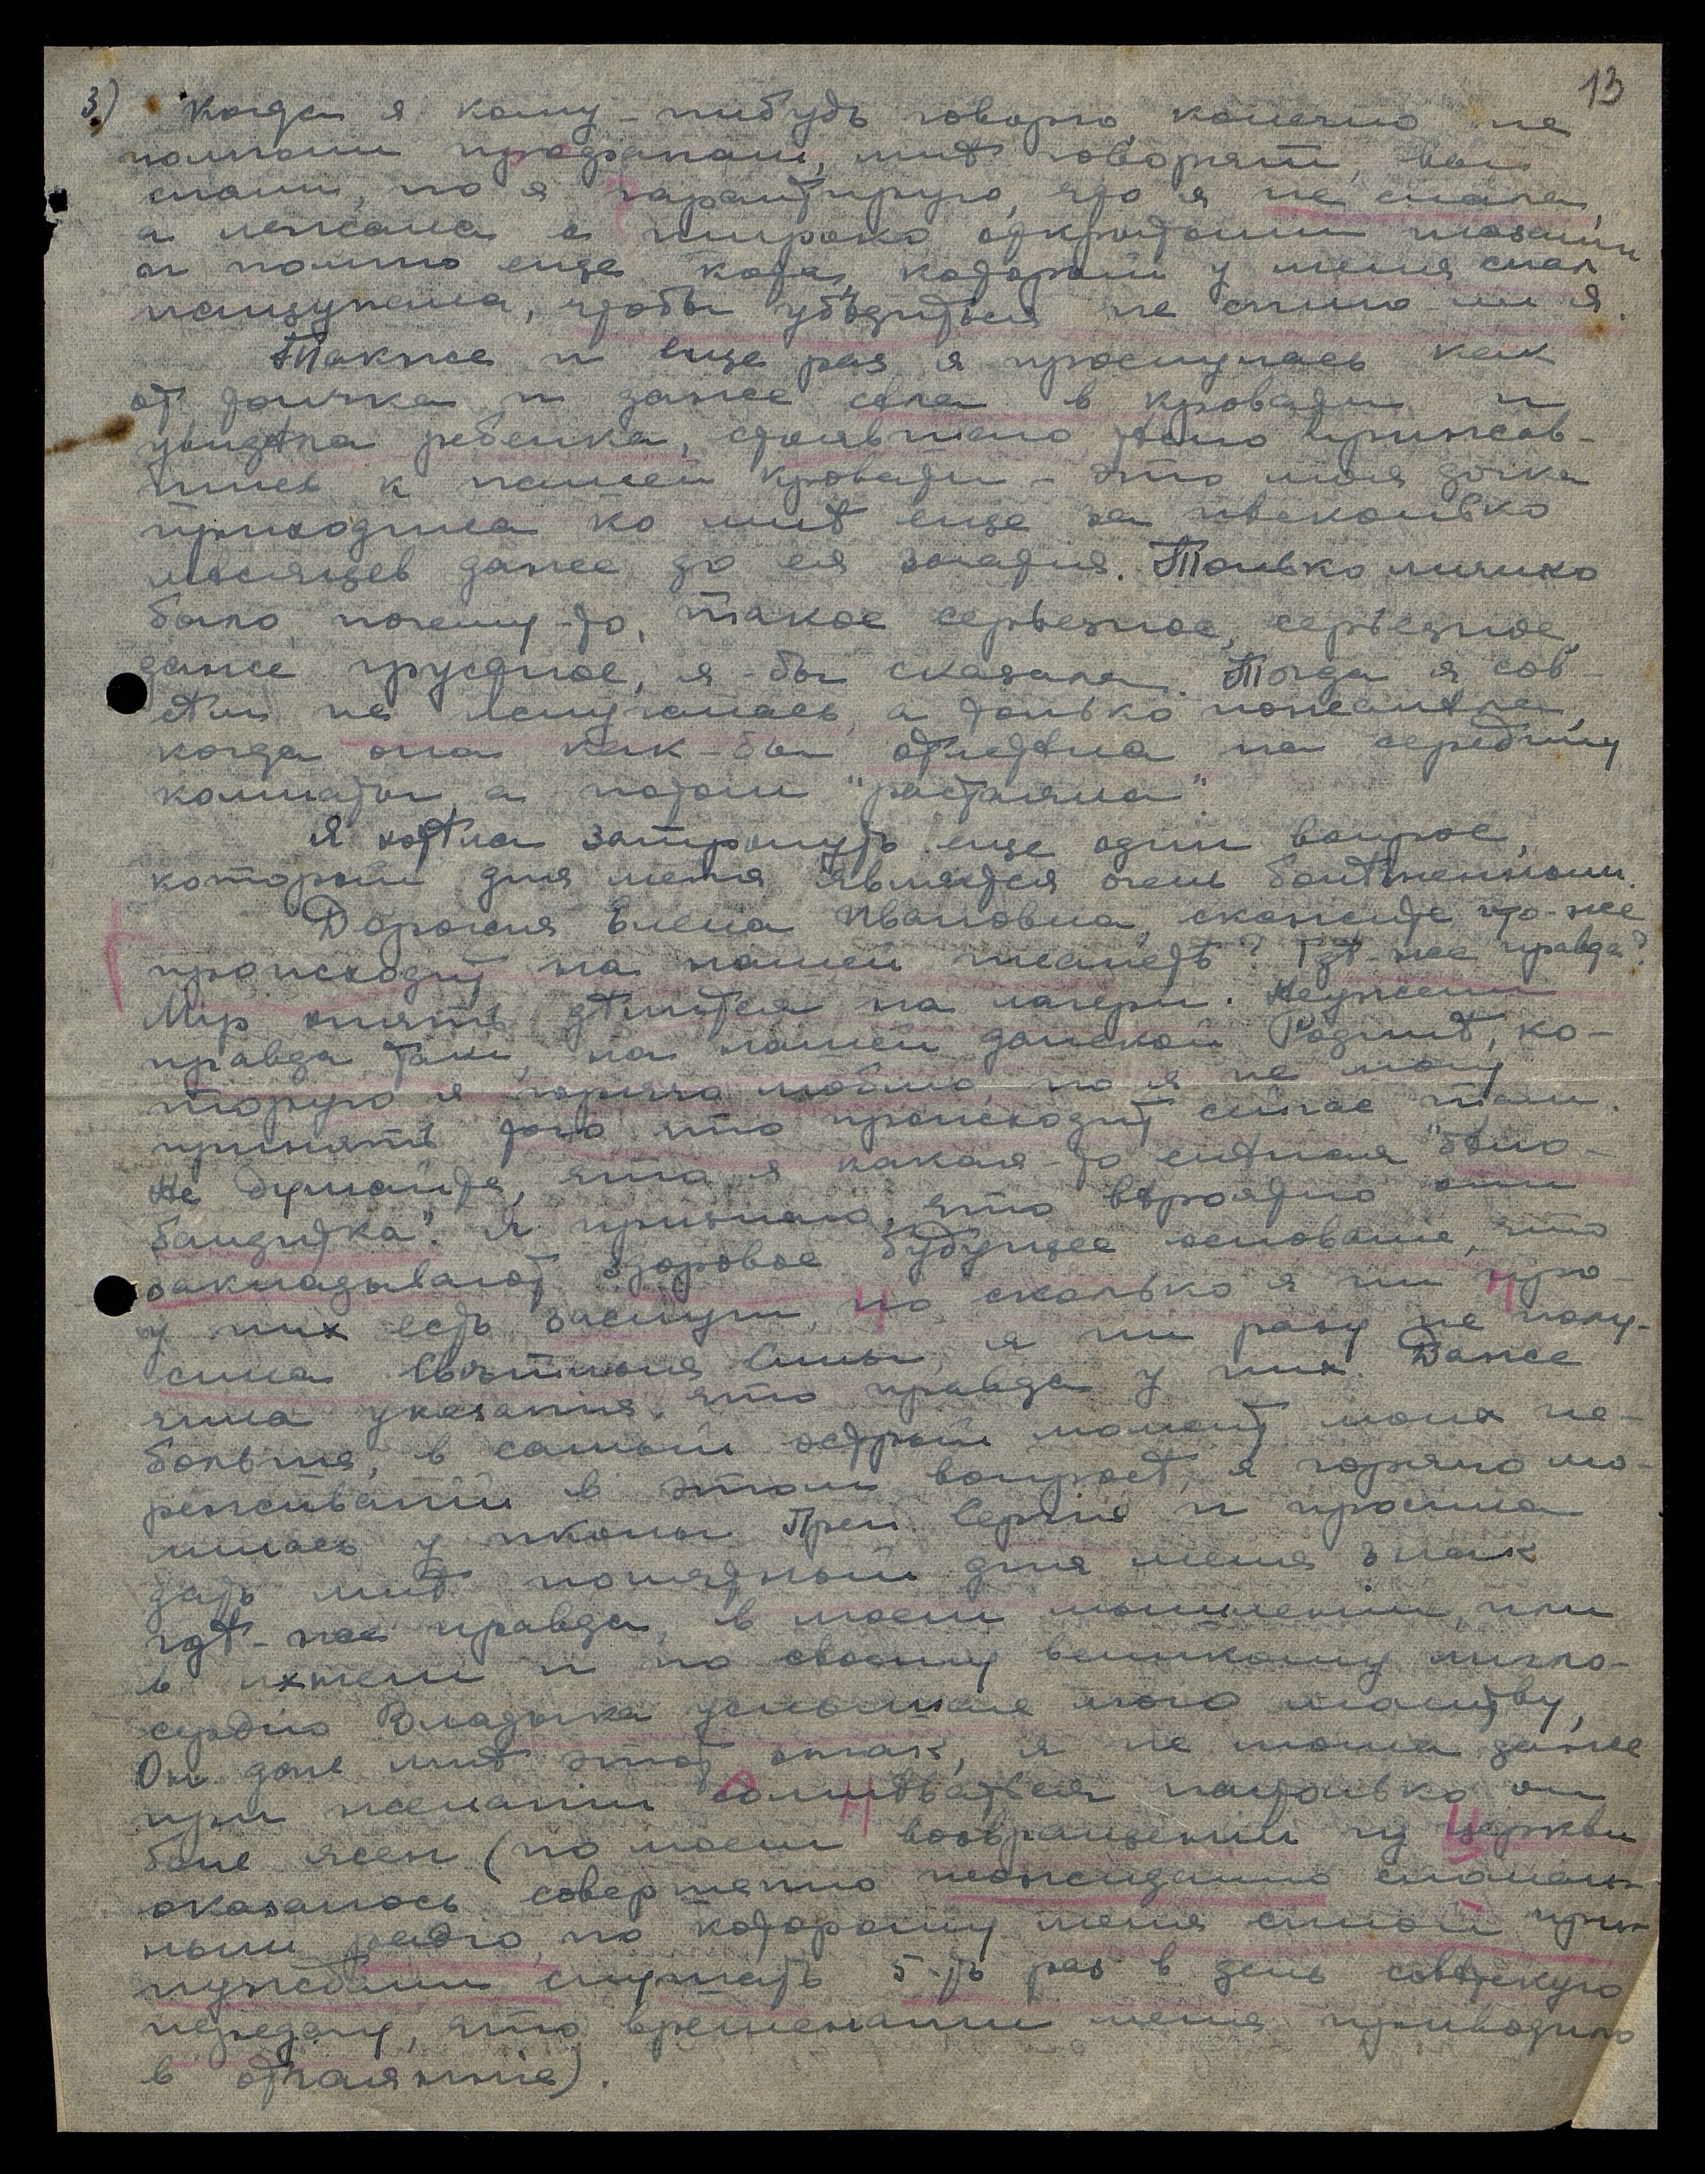 13
3) Когда я кому-нибудь говорю, конечно не
полным профанам, мнѣ говорят, вы
спали, но я гарантирую, что я не спала,
а лежала с широко открытыми глазами
и помню еще кота, который у меня спал
нащупала, чтобы убѣдиться не сплю-ли я.
Также и еще раз я проснулась как
от толчка и даже сѣла в кровати и
увидѣла ребенка, стоявшего прижав-
шись к нашей кровати - это моя дочка
приходила ко мнѣ еще за нѣсколько
мѣсяцев даже до ея зачатія. Только личико
было почему-то, такое серьезное, серьезное,
даже грустное, я-бы сказала. Тогда я сов-
сѣм не испугалась, а только пожалѣла,
когда она как-бы отлетѣла на середину
комнаты, а потом "растаяла".
Я хотѣла затронуть еще один вопрос,
который для меня является очень болѣзненным.
Дорогая Елена Ивановна, скажите что-же
происходит на нашей планетѣ? Гдѣ-же правда?
Мір опять дѣлится на лагери. Неужели
правда там, на нашей далекой Родинѣ, ко-
торую я горячо люблю, но я не могу
принять того что происходит сейчас там.
Не думайте, что я какая-то слѣпая "бѣло-
бандитка". Я признаю, что вѣроятно они
закладывают здоровое будущее основаніе, что
у них есть заслуги, но сколько я ни про-
сила Свѣтлыя Силы, я ни разу не полу-
чила указанія, что правда у них. Даже
больше, в самый острый момент моих пе-
реживаній в этом вопросѣ, я горячо мо-
лилась у иконы Преп. Сергія и просила
дать мнѣ понятный для меня знак
гдѣ-же правда, в моем мышленіи, или
в ихнем и по своему великому мило-
сердію Владыка услышал мою молитву,
Он дал мнѣ этот знак, я не могла даже
при желаніи сомнѣваться настолько он
был ясен (по моем возвращеніи из церкви
оказалось совершенно неожиданно сломан-
ным радіо, по которому меня силой при-
нуждали слушать 5-ть раз в день совѣтскую
передачу, что временами меня приводило
в отчаянніе).